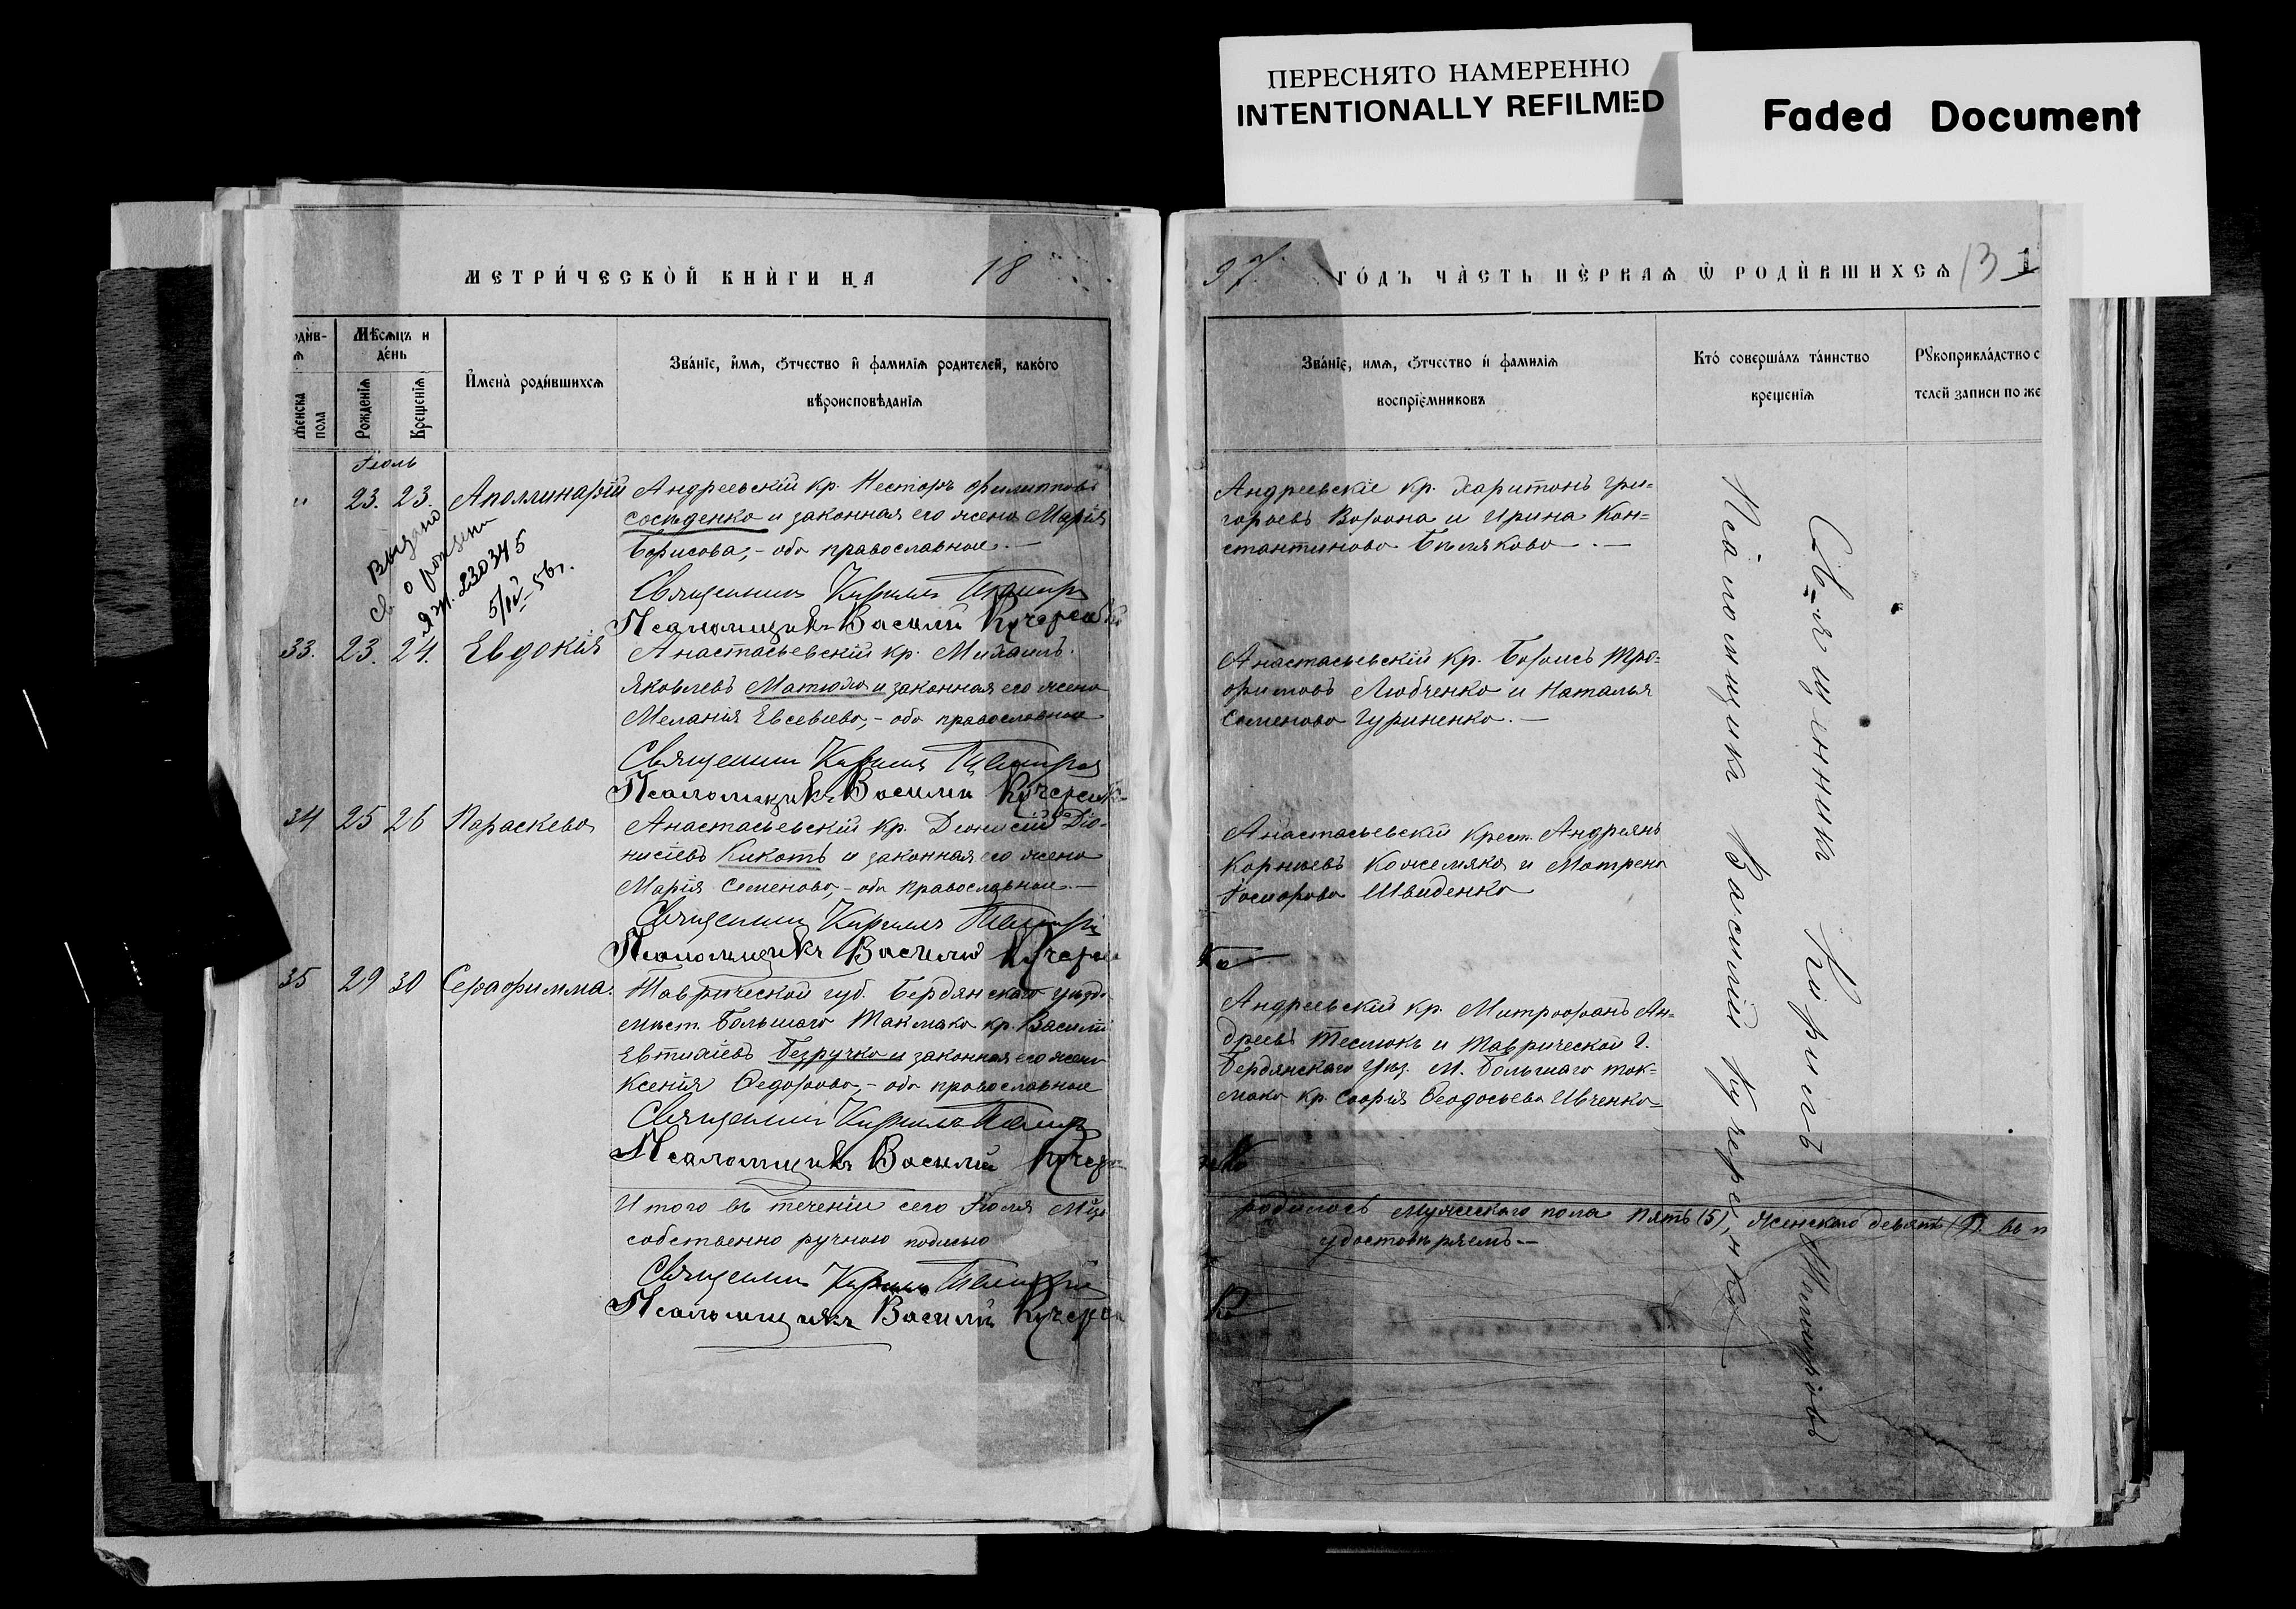 ПЕРЕСНЯТО НАМЕРЕННО
INTENTIONALLY REFILMED
Faded Document
МЕТРИ́ЧЕСКОЙ КНИ́ГИ НА 18
97 ГО́ДЪ ЧА́СТЬ ПЕ́РВАѦ Ѿ РОДИ́ВШИХСѦ 13
Мѣсѧцъ и
де́нь
Же́нска
пола
Рожденїѧ
Крещенїѧ
И҆мена̀ роди́вшихсѧ
Зва́нїе, и҆мѧ, ѻ҆тчество и҆ фамилїѧ родителей, како́го
вѣроисповѣданїѧ
Зва́нїе, имѧ, ѻ҆тчество и҆ фамилїѧ
воспрїемниковъ
Кто̀ соверша́лъ та́инство
крещенїѧ
Рꙋкоприкла́дство с
телей записи по же
Іюль
" 23. 23. Аполлинарій
Андреевскій кр. Несторъ Филипповъ
Сосѣденко и законная его жена Марія
Борисова, - оба православные. —
Священникъ Кириллъ
Псаломщикъ Василій Кучерен
Выдано
св. о рожден
ЯЯ. 230345
5/IV-56г.
Андреевскіе кр. Харитонъ Гри=
горьевъ Ворона и Ирина Кон=
стантинова Бѣлякова. —
33. 23. 24. Евдокія
Анастасьевскій кр. Михаилъ
Яковлевъ Матюха и законная его жена
Меланія Евсевіева, - оба православные
Священникъ Кириллъ
Псаломщикъ Василій Кучеренко
Анастасьевскій кр. Борисъ Тро=
фимовъ Любченко и Наталья
Семенова Гуриненко. —
34 25 26 Параскева
Анастасьевскій кр. Діонисій Діо-
нисіевъ Кикоть и законная его жена
Марія Семенова, - оба православные. —
Священникъ Кириллъ
Псаломщикъ Василій Кучерен
Анастасьевскій крест. Андреянъ
Корнѣевъ Кожемяка и Матрена
Швиденко
ко
35 29 30 Серафимма.
Таврической губ. Бердянскаго уѣзд.
мѣст. Большаго Токмака кр. Василій
Евтихіевъ Безручко и законная его жена
Ксенія Ѳедорова, - оба православные
Священникъ Кириллъ
Псаломщикъ Василій Кучере
Андреевскій кр. Митрофанъ Ан=
дреевъ Теслюкъ и Таврической г.
Бердянскаго уѣз. м. Большаго Ток=
мака кр. Софія Ѳеодосьева Ивченко=
Итого въ теченіи сего Іюля м-ца
родилось мужескаго пола пять (5), женскаго девять (9). въ
собственно ручною подписью
удостовѣряемъ. —
Священникъ Кириллъ
Псаломщикъ Василій Кучерен
Священникъ Кириллъ
Псаломщикъ Василій Кучеренко